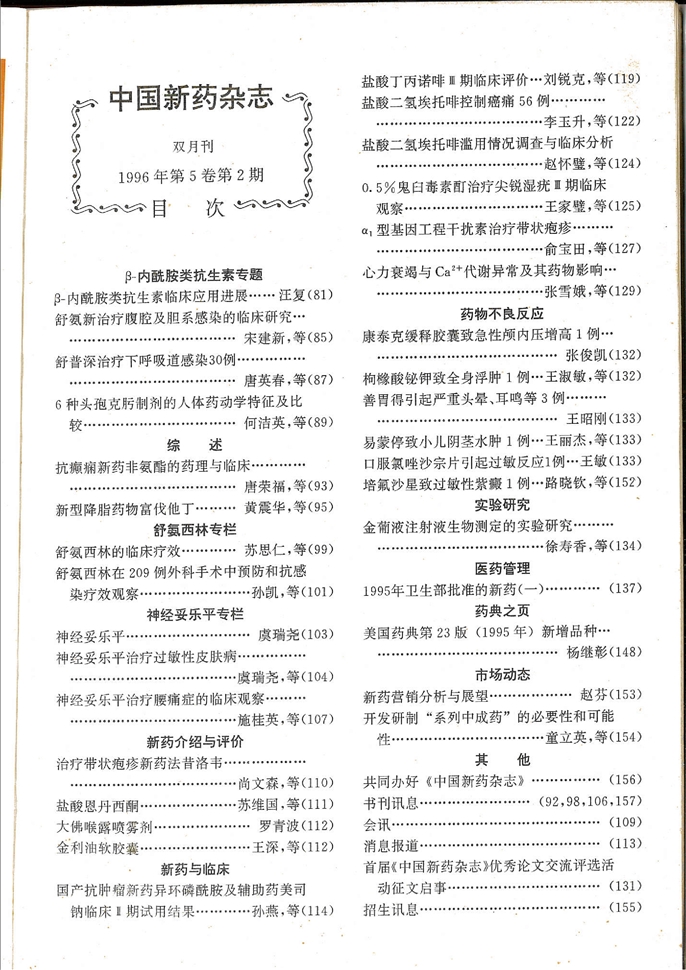 中国新药杂志
双月刊
1996年第5卷第2期
目 次
β-内酰胺类抗生素专题
β-内酰胺类抗生素临床应用进展……汪复(81)
舒氨新治疗腹腔及胆系感染的临床研究…
………………………………宋建新,等(85)
舒普深治疗下呼吸道感染30例……………
………………………………唐英春,等(87)
6种头孢克肟制剂的人体药动学特征及比
较……………………………何洁英,等(89)
综 述
抗癫痫新药非氨酯的药理与临床…………
………………………………唐荣福,等(93)
新型降脂药物富伐他丁………黄震华,等(95)
舒氨西林专栏
舒氨西林的临床疗效…………苏思仁,等(99)
舒氨西林在209例外科手术中预防和抗感
染疗效观察……………………孙凯,等(101)
神经妥乐平专栏
神经妥乐平………………………虞瑞尧(103)
神经妥乐平治疗过敏性皮肤病……………
………………………………虞瑞尧,等(104)
神经妥乐平治疗腰痛症的临床观察………
………………………………施桂英,等(107)
新药介绍与评价
治疗带状疱疹新药法昔洛韦………………
………………………………尚文森,等(110)
盐酸恩丹西酮…………………苏维国,等(111)
大佛喉露喷雾剂…………………罗青波(112)
金利油软胶囊……………………王深,等(112)
新药与临床
国产抗肿瘤新药异环磷酰胺及辅助药美司
钠临床Ⅱ期试用结果…………孙燕,等(114)
盐酸丁丙诺啡Ⅲ期临床评价…刘锐克,等(119)
盐酸二氢埃托啡控制癌痛56例…………
………………………………李玉升,等(122)
盐酸二氢埃托啡滥用情况调查与临床分析
………………………………赵怀璧,等(124)
0.5%鬼臼毒素酊治疗尖锐湿疣Ⅲ期临床
观察…………………………王家璧,等(125)
α₁型基因工程干扰素治疗带状疱疹………
………………………………俞宝田,等(127)
心力衰竭与Ca²⁺代谢异常及其药物影响…
………………………………张雪娥,等(129)
药物不良反应
康泰克缓释胶囊致急性颅内压增高1例…
…………………………………张俊凯(132)
枸橼酸铋钾致全身浮肿1例…王淑敏,等(132)
善胃得引起严重头晕、耳鸣等3例………
…………………………………王昭刚(133)
易蒙停致小儿阴茎水肿1例…王丽杰,等(133)
口服氯唑沙宗片引起过敏反应1例…王敏(133)
培氟沙星致过敏性紫癜1例…路晓钦,等(152)
实验研究
金葡液注射液生物测定的实验研究………
………………………………徐寿香,等(134)
医药管理
1995年卫生部批准的新药(一)…………(137)
药典之页
美国药典第23版(1995年)新增品种…
…………………………………杨继彰(148)
市场动态
新药营销分析与展望………………赵芬(153)
开发研制“系列中成药”的必要性和可能
性……………………………童立英,等(154)
其 他
共同办好《中国新药杂志》……………(156)
书刊讯息……………………(92,98,106,157)
会讯………………………………………(109)
消息报道…………………………………(113)
首届《中国新药杂志》优秀论文交流评选活
动征文启事………………………………(131)
招生讯息…………………………………(155)